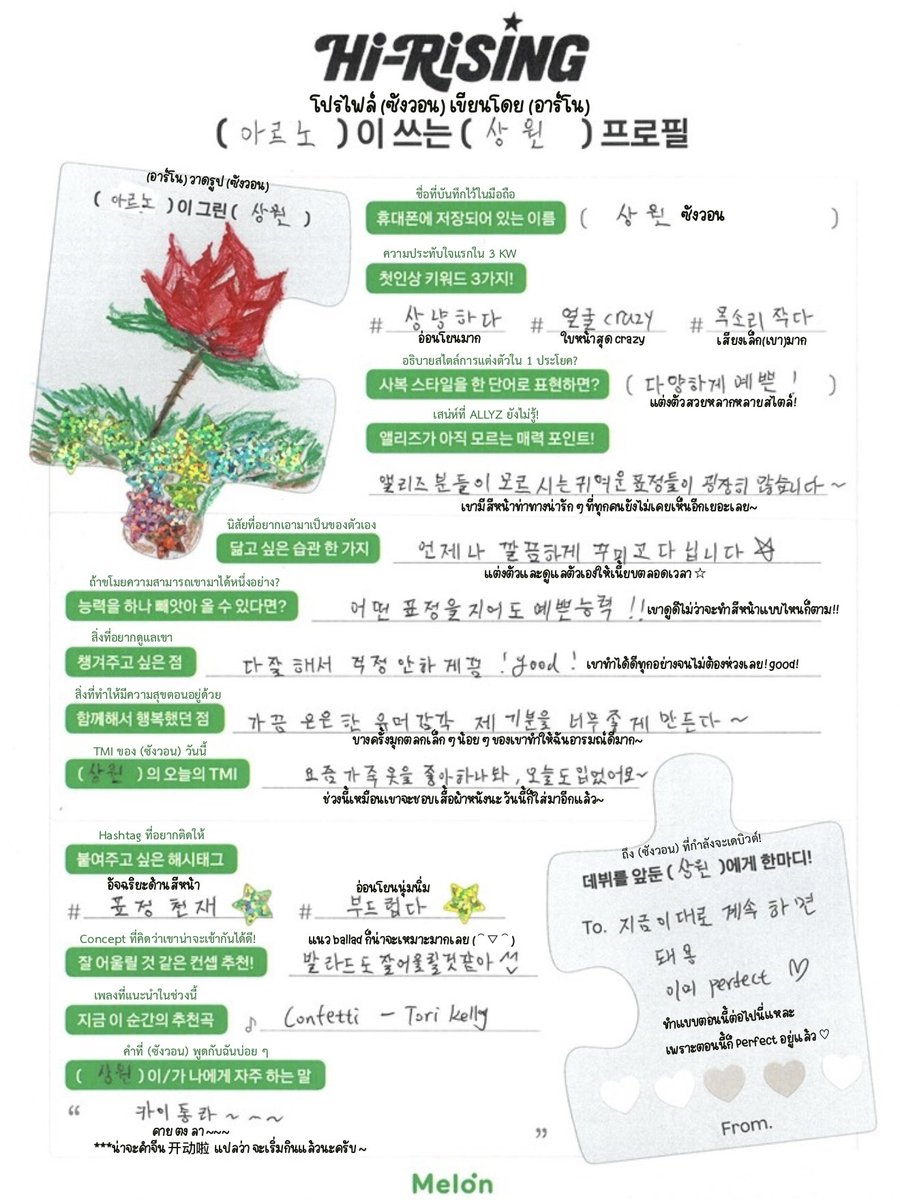 Hi-RiSiNG
โปรไฟล์ (ซังวอน) เขียนโดย (อาร์โน)
( 아르노 ) 이 쓰는 ( 상원 ) 프로필
(อาร์โน) วาดรูป (ซังวอน)
( 아르노 ) 이 그린 ( 상원 )
ชื่อที่บันทึกไว้ในมือถือ
휴대폰에 저장되어 있는 이름 ( 상원 ซังวอน )
ความประทับใจแรกใน 3 KW
첫인상 키워드 3가지!
# 상냥하다 # 얼굴 crazy # 목소리 작다
อ่อนโยนมาก ใบหน้าสุด crazy เสียงเล็ก(เบา)มาก
อธิบายสไตล์การแต่งตัวใน 1 ประโยค?
사복 스타일을 한 단어로 표현하면? ( 다양하게 예쁜! )
แต่งตัวสวยหลากหลายสไตล์!
เสน่ห์ที่ ALLYZ ยังไม่รู้!
앨리즈가 아직 모르는 매력 포인트!
앨리즈 분들이 모르시는 귀여운 표정들이 굉장히 많습니다~
เขามีสีหน้าท่าทางน่ารัก ๆ ที่ทุกคนยังไม่เคยเห็นอีกเยอะเลย~
นิสัยที่อยากเอามาเป็นของตัวเอง
닮고 싶은 습관 한 가지 언제나 깔끔하게 꾸미고 다닙니다 ☆
แต่งตัวและดูแลตัวเองให้เนี้ยบตลอดเวลา ☆
ถ้าขโมยความสามารถเขามาได้หนึ่งอย่าง?
능력을 하나 빼앗아 올 수 있다면? 어떤 표정을 지어도 예쁜 능력!! เขาดูดีไม่ว่าจะทำสีหน้าแบบไหนก็ตาม!!
สิ่งที่อยากดูแลเขา
챙겨주고 싶은 점 다 잘해서 걱정 안 하게끔! good! เขาทำได้ดีทุกอย่างจนไม่ต้องห่วงเลย! good!
สิ่งที่ทำให้มีความสุขตอนอยู่ด้วย
함께해서 행복했던 점 가끔 은은한 유머감각 제 기분을 너무 좋게 만든다~
บางครั้งมุกตลกเล็ก ๆ น้อย ๆ ของเขาทำให้ฉันอารมณ์ดีมาก~
TMI ของ (ซังวอน) วันนี้
( 상원 ) 의 오늘의 TMI 요즘 가죽 옷을 좋아하나봐, 오늘도 입었어요~
ช่วงนี้เหมือนเขาจะชอบเสื้อผ้าหนังนะ วันนี้ก็ใส่มาอีกแล้ว~
Hashtag ที่อยากติดให้
붙여주고 싶은 해시태그
อัจฉริยะด้านสีหน้า อ่อนโยนนุ่มนิ่ม
# 표정 천재 # 부드럽다
Concept ที่คิดว่าเขาน่าจะเข้ากันได้ดี!
แนว ballad ก็น่าจะเหมาะมากเลย (⌒▽⌒)
잘 어울릴 것 같은 컨셉 추천! 발라드도 잘 어울릴것 같아
เพลงที่แนะนำในช่วงนี้
지금 이 순간의 추천곡 ♪ Confetti - Tori Kelly
คำที่ (ซังวอน) พูดกับฉันบ่อย ๆ
( 상원 ) 이/가 나에게 자주 하는 말
“ 카이통라~~~ ”
คาย ตง ลา ~~~
***น่าจะคำจีน 开动啦 แปลว่า จะเริ่มกินแล้วนะครับ ~
ถึง (ซังวอน) ที่กำลังจะเดบิวต์!
데뷔를 앞둔 ( 상원 )에게 한마디!
To. 지금 이대로 계속 하면
돼용
이미 perfect ♡
ทำแบบตอนนี้ต่อไปนี่แหละ
เพราะตอนนี้ก็ Perfect อยู่แล้ว ♡
From.
Melon